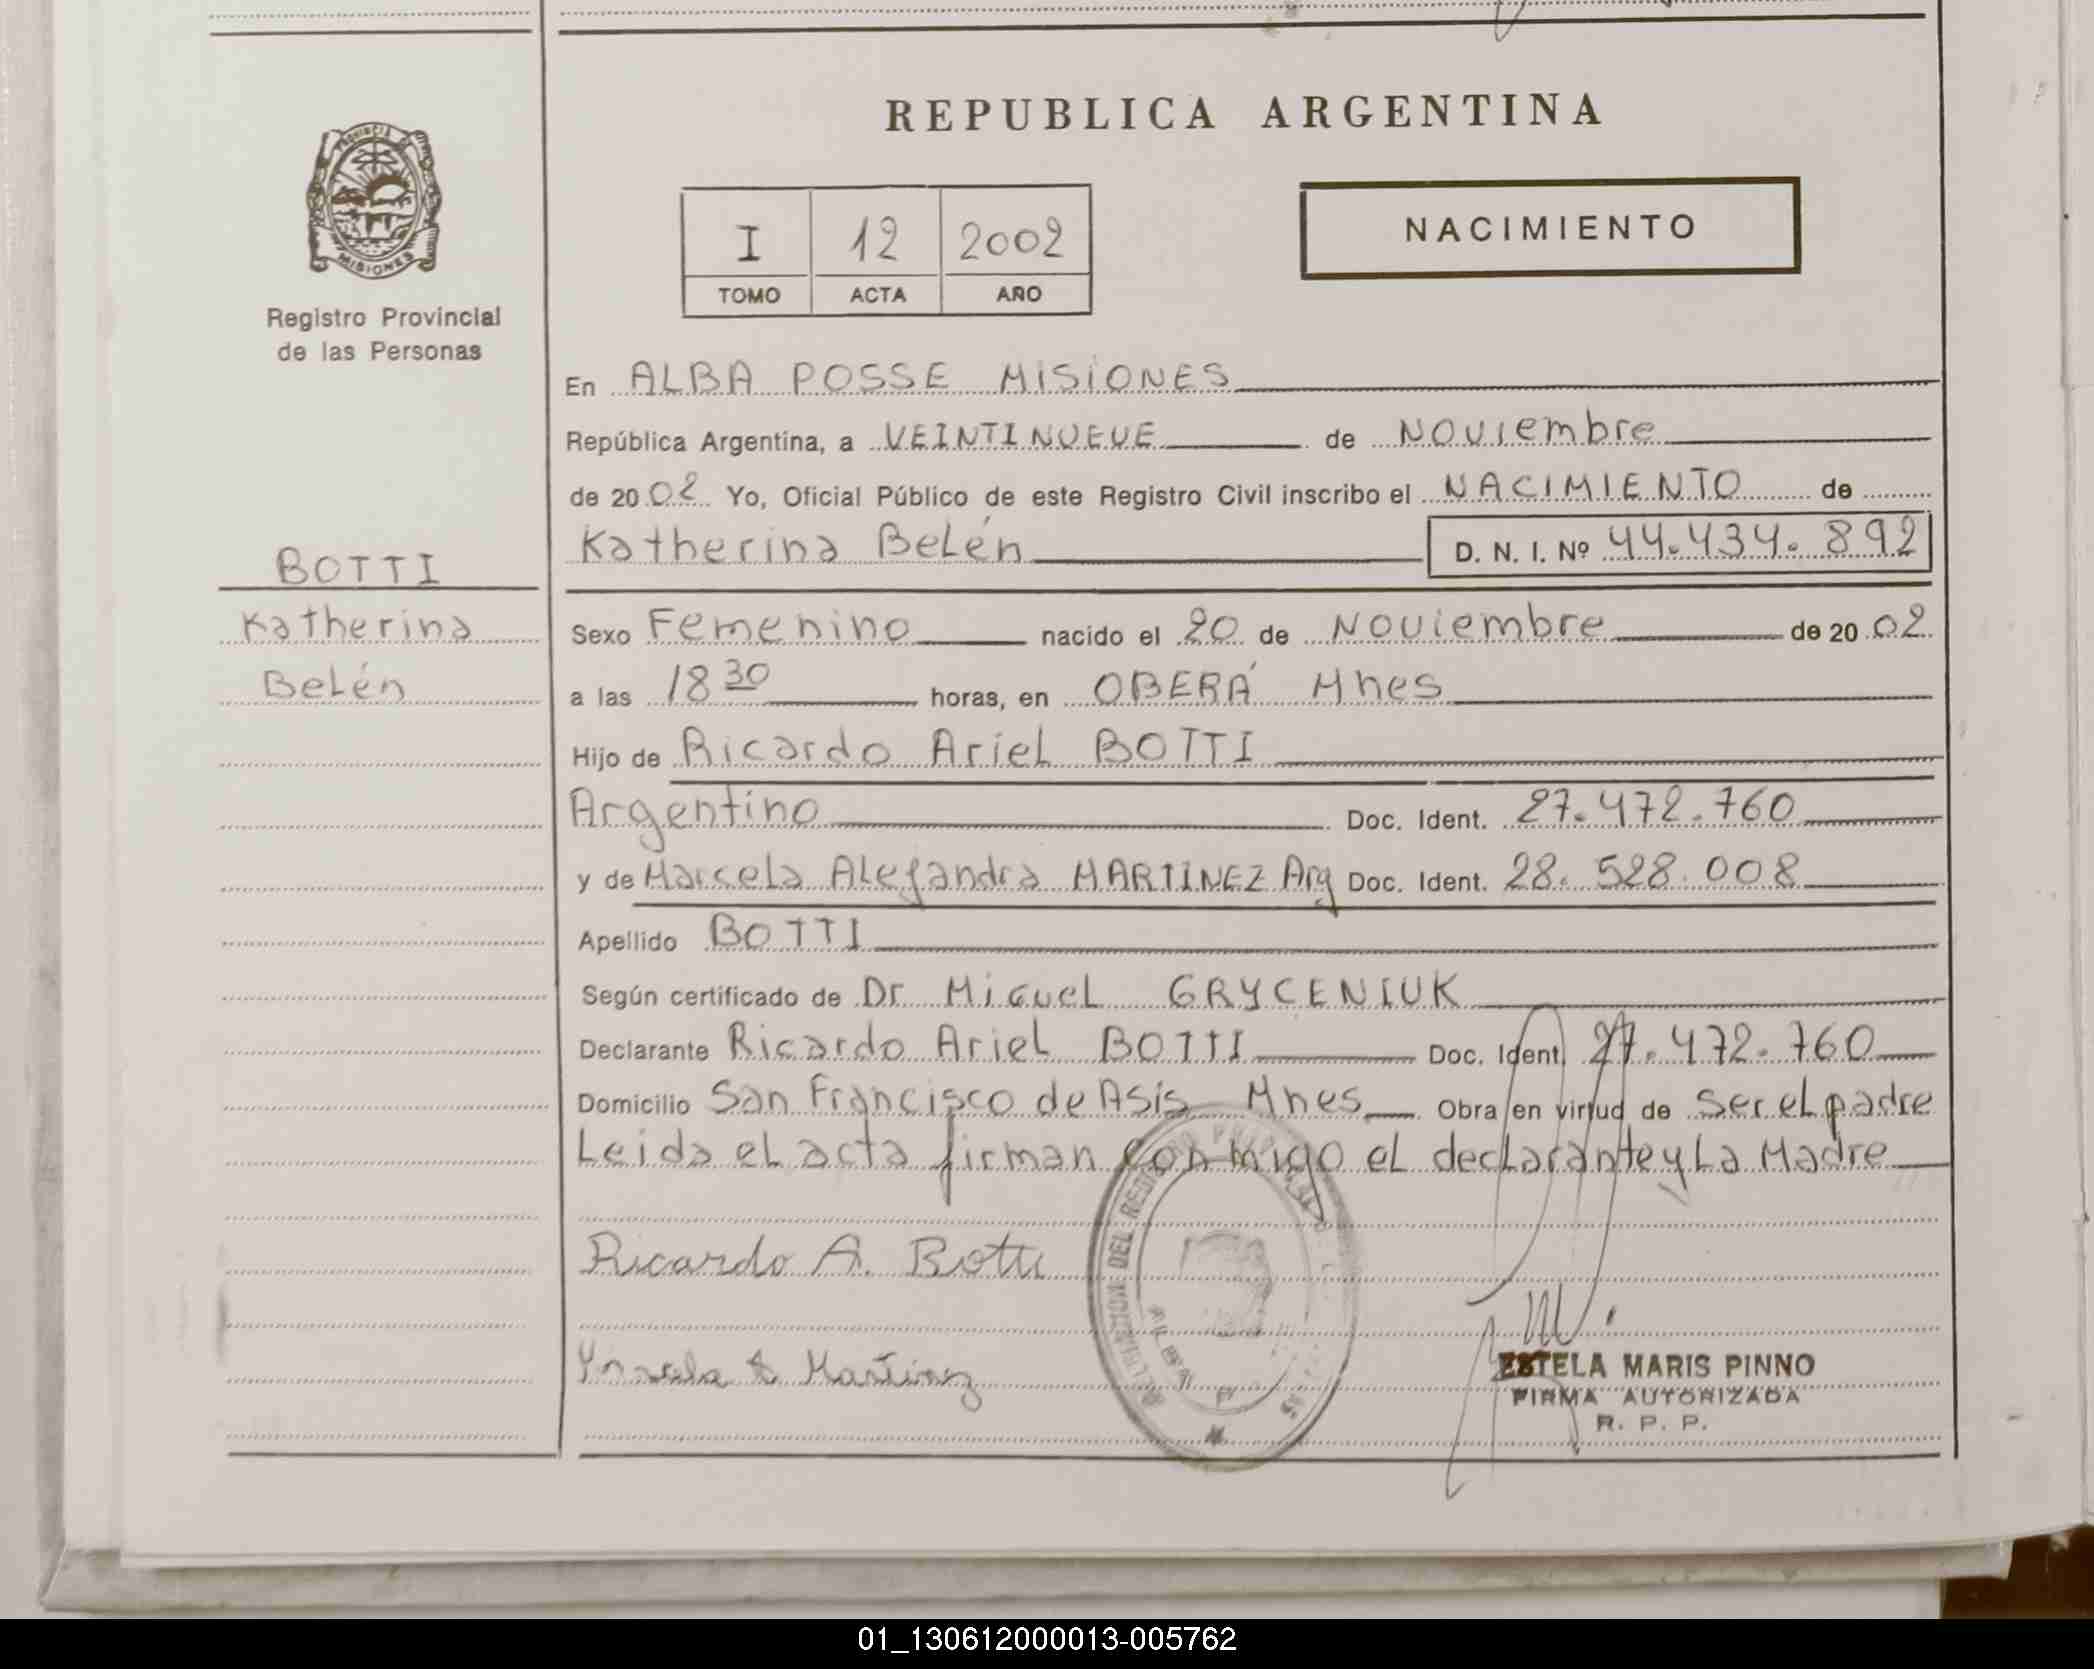 REPUBLICA ARGENTINA
Provincia de
MISIONES
Registro Provincial
de las Personas
I 12 2002
TOMO ACTA AÑO
NACIMIENTO
En ALBA POSSE MISIONES
República Argentina, a VEINTINUEVE de Noviembre
de 2002 Yo, Oficial Público de este Registro Civil inscribo el NACIMIENTO de
Katherina Belén D. N. I. Nº 44.434.892
BOTTI
Katherina
Belén
Sexo Femenino nacido el 20 de Noviembre de 2002
a las 18 30 horas, en OBERÁ Mnes
Hijo de Ricardo Ariel BOTTI
Argentino Doc. Ident. 27.472.760
y de Marcela Alejandra MARTINEZ Arg Doc. Ident. 28.528.008
Apellido BOTTI
Según certificado de Dr Miguel GRYCENIUK
Declarante Ricardo Ariel BOTTI Doc. Ident. 27.472.760
Domicilio San Francisco de Asís Mnes Obra en virtud de ser el padre
Leida el acta firman conmigo el declarante y La Madre
Ricardo A. Botti
Martinez
DELEGACION DEL REGISTRO
ESTELA MARIS PINNO
FIRMA AUTORIZADA
R. P. P.
01_130612000013-005762